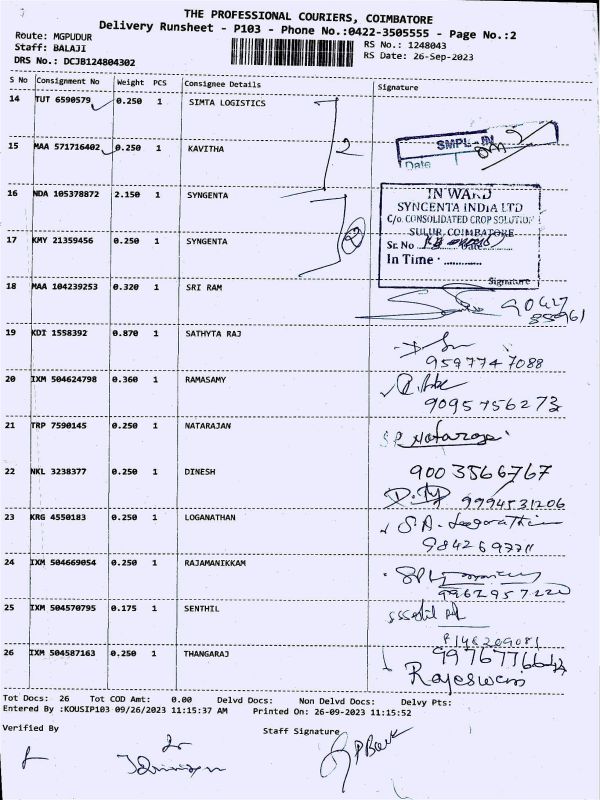 THE PROFESSIONAL COURIERS, COIMBATORE
Delivery Runsheet - P103 - Phone No.:0422-3505555 - Page No.:2
Route: MGPUDUR RS No.: 1248043
Staff: BALAJI RS Date: 26-Sep-2023
DRS No.: DCJB124804302
S No Consignment No Weight PCS Consignee Details Signature
14 TUT 6590579 0.250 1 SIMTA LOGISTICS
2
SMPL - IN
Date
15 MAA 571716402 0.250 1 KAVITHA
16 NDA 105378872 2.150 1 SYNGENTA
2
IN WARD
SYNCENTA INDIA LTD
C/o. CONSOLIDATED CROP SOLUTION
SULUR, COIMBATORE
Sr. No Date
In Time : ............
Signature
17 KMY 21359456 0.250 1 SYNGENTA
18 MAA 104239253 0.320 1 SRI RAM
90427
19 KDI 1558392 0.870 1 SATHYTA RAJ
9597747088
20 IXM 504624798 0.360 1 RAMASAMY
9095756273
21 TRP 7590145 0.250 1 NATARAJAN
S.P. Nataraja
22 NKL 3238377 0.250 1 DINESH
9003566767
9994531206
23 KRG 4550183 0.250 1 LOGANATHAN
24 IXM 504669054 0.250 1 RAJAMANIKKAM
9962957220
25 IXM 504570795 0.175 1 SENTHIL
26 IXM 504587163 0.250 1 THANGARAJ
Rajeswari
Tot Docs: 26 Tot COD Amt: 0.00 Delvd Docs: Non Delvd Docs: Delvy Pts:
Entered By :KOUSIP103 09/26/2023 11:15:37 AM Printed On: 26-09-2023 11:15:52
Verified By Staff Signature